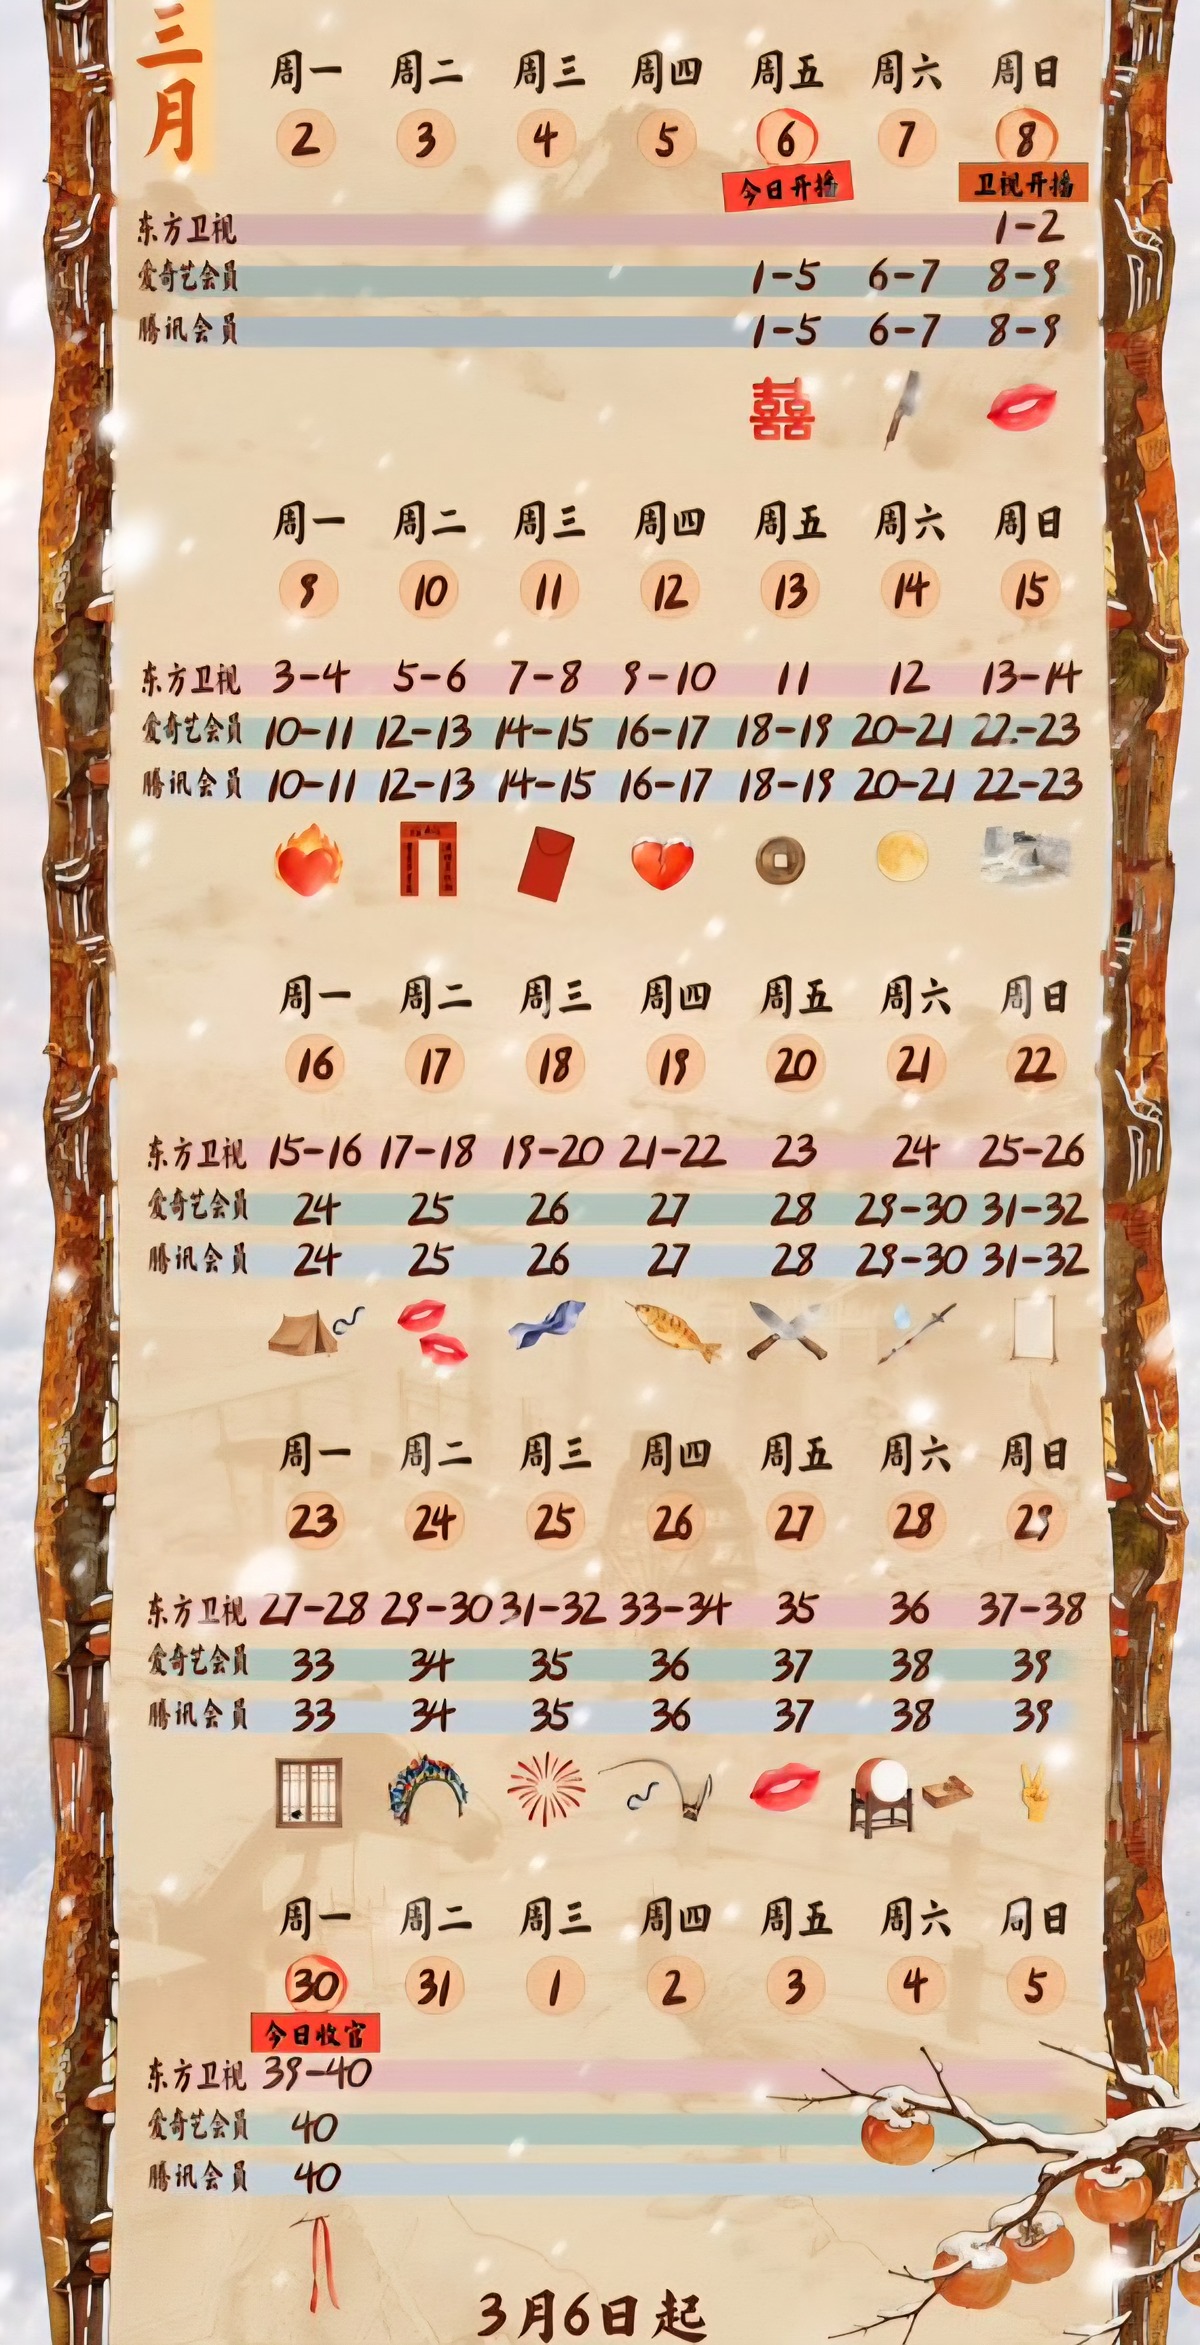 三月
周一 周二 周三 周四 周五 周六 周日
2 3 4 5 6 7 8
今日开播 卫视开播
东方卫视 1-2
爱奇艺会員 1-5 6-7 8-9
腾讯会員 1-5 6-7 8-9
囍
周一 周二 周三 周四 周五 周六 周日
9 10 11 12 13 14 15
东方卫视 3-4 5-6 7-8 9-10 11 12 13-14
爱奇艺会員 10-11 12-13 14-15 16-17 18-19 20-21 22-23
腾讯会員 10-11 12-13 14-15 16-17 18-19 20-21 22-23
周一 周二 周三 周四 周五 周六 周日
16 17 18 19 20 21 22
东方卫视 15-16 17-18 19-20 21-22 23 24 25-26
爱奇艺会員 24 25 26 27 28 29-30 31-32
腾讯会員 24 25 26 27 28 29-30 31-32
周一 周二 周三 周四 周五 周六 周日
23 24 25 26 27 28 29
东方卫视 27-28 29-30 31-32 33-34 35 36 37-38
爱奇艺会員 33 34 35 36 37 38 39
腾讯会員 33 34 35 36 37 38 39
周一 周二 周三 周四 周五 周六 周日
30 31 1 2 3 4 5
今日收官
东方卫视 39-40
爱奇艺会員 40
腾讯会員 40
3月6日起